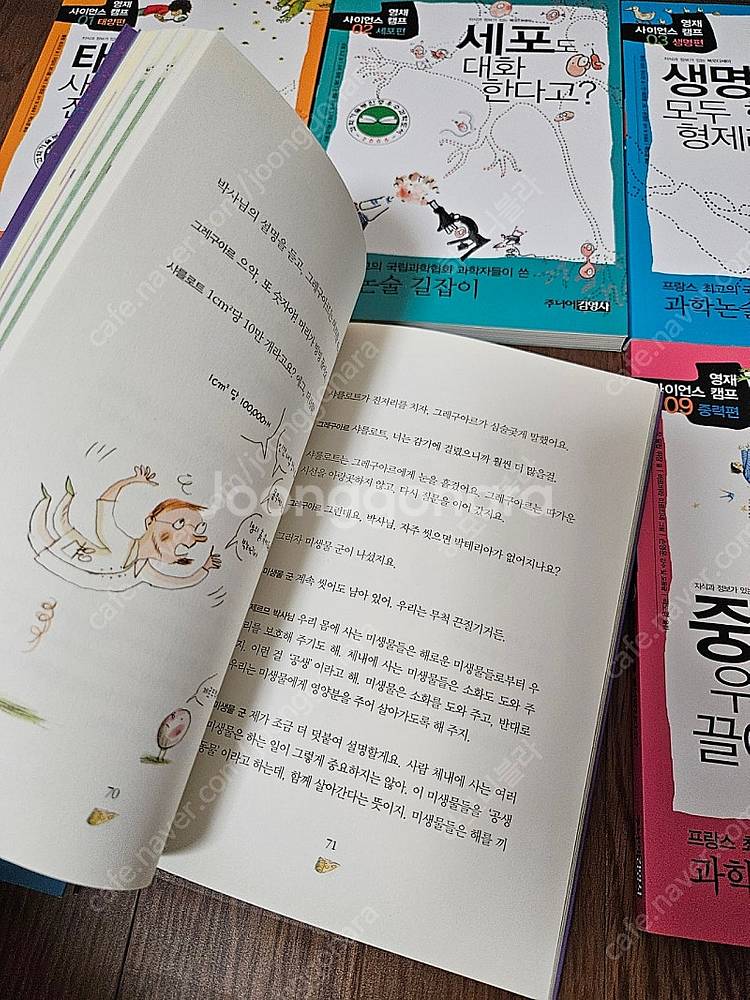 영재
사이언스 캠프
01 태양편
영재
사이언스 캠프
02 세포편
세포도
대화
한다고?
국립과학협회 과학자들이 쓴
논술 길잡이
주니어김영사
영재
사이언스 캠프
03 생명편
생명
모두
형제
프랑스 최고의
과학논술
영재
사이언스 캠프
09 중력편
중
우
끌
프랑스 최고
과학
박사님의 설명을 듣고, 그레구아르는
그레구아르 으악, 또 숫자야! 머리가
샤를로트 1cm²당 10만 개라고요?
1cm²당 100,000개
70
샤를로트가 진저리를 치자, 그레구아르가 심술궂게 말했어요.
그레구아르 샤를로트, 너는 감기에 걸렸으니까 훨씬 더 많을걸.
샤를로트는 그레구아르에게 눈을 흘겼어요. 그레구아르는 따가운
시선을 아랑곳하지 않고, 다시 질문을 이어 갔지요.
그레구아르 그런데요, 박사님. 자주 씻으면 박테리아가 없어지나요?
그러자 미생물 군이 나섰지요.
미생물 군 계속 씻어도 남아 있어. 우리는 무척 끈질기거든.
제르므 박사님 우리 몸에 사는 미생물들은 해로운 미생물들로부터 우
리를 보호해 주기도 해. 체내에 사는 미생물들은 소화도 도와 주
지. 이런 걸 '공생'이라고 해. 미생물은 소화를 도와 주고, 반대로
우리는 미생물에게 영양분을 주어 살아가도록 해 주지.
미생물 군 제가 조금 더 덧붙여 설명할게요. 사람 체내에 사는 여러
미생물은 하는 일이 그렇게 중요하지는 않아. 이 미생물들을 '공생
동물'이라고 하는데, 함께 살아간다는 뜻이지. 미생물들은 해를 끼
71
Joonggonara